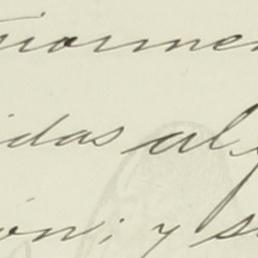 riormen
idas alg
ón; y s